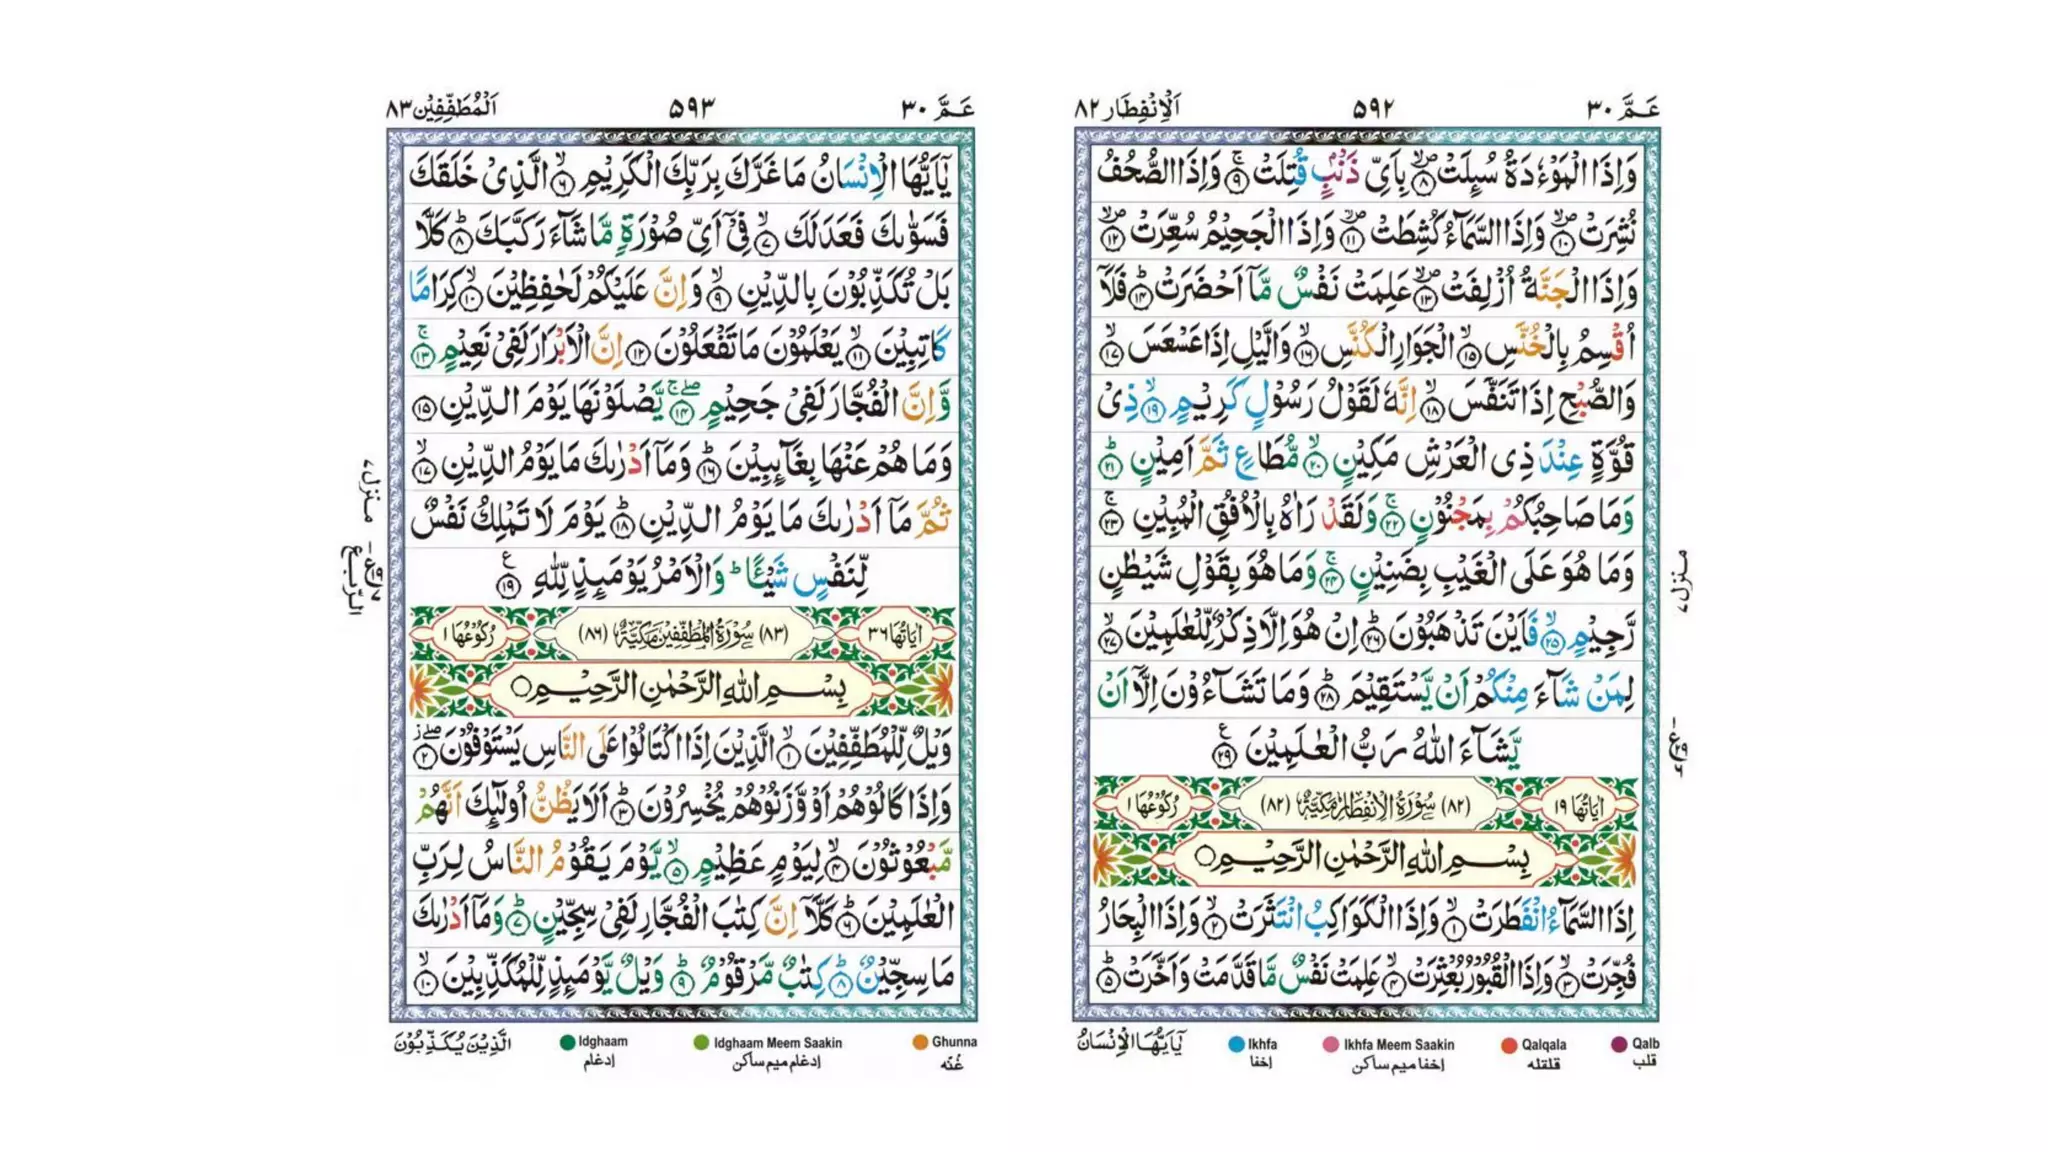 عَـمَّ ٣٠
٥٩٢
اَلْاِنْفِطَار ٨٢
وَاِذَا الْمَوْءٗدَةُ سُىِٕلَتْ ۪ۙ‏ ﴿٨﴾ بِاَىِّ ذَنْۢبٍ قُتِلَتْ ۚ‏ ﴿٩﴾ وَاِذَا الصُّحُفُ
نُشِرَتْ ۪ۙ‏ ﴿١٠﴾ وَاِذَا السَّمَآءُ كُشِطَتْ ۪ۙ‏ ﴿١١﴾ وَاِذَا الْجَحِيْمُ سُعِّرَتْ ۪ۙ‏ ﴿١٢﴾
وَاِذَا الْجَنَّةُ اُزْلِفَتْ ۪ۙ‏ ﴿١٣﴾ عَلِمَتْ نَفْسٌ مَّاۤ اَحْضَرَتْ ؕ‏ ﴿١٤﴾ فَلَاۤ
اُقْسِمُ بِالْخُنَّسِ ۙ‏ ﴿١٥﴾ الْجَوَارِ الْكُنَّسِ ۙ‏ ﴿١٦﴾ وَالَّيْلِ اِذَا عَسْعَسَ ۙ‏ ﴿١٧﴾
وَالصُّبْحِ اِذَا تَنَفَّسَ ۙ‏ ﴿١٨﴾ اِنَّهٗ لَقَوْلُ رَسُوْلٍ كَرِيْمٍ ۙ‏ ﴿١٩﴾ ذِىْ
قُوَّةٍ عِنْدَ ذِى الْعَرْشِ مَكِيْنٍ ۙ‏ ﴿٢٠﴾ مُّطَاعٍ ثَمَّ اَمِيْنٍ ؕ‏ ﴿٢١﴾
وَمَا صَاحِبُكُمْ بِمَجْنُوْنٍ ۚ‏ ﴿٢٢﴾ وَلَقَدْ رَاٰهُ بِالْاُفُقِ الْمُبِيْنِ ۚ‏ ﴿٢٣﴾
وَمَا هُوَ عَلَى الْغَيْبِ بِضَنِيْنٍ ۚ‏ ﴿٢٤﴾ وَمَا هُوَ بِقَوْلِ شَيْطٰنٍ
رَّجِيْمٍ ۙ‏ ﴿٢٥﴾ فَاَيْنَ تَذْهَبُوْنَ ؕ‏ ﴿٢٦﴾ اِنْ هُوَ اِلَّا ذِكْرٌ لِّلْعٰلَمِيْنَ ۙ‏ ﴿٢٧﴾
لِمَنْ شَآءَ مِنْكُمْ اَنْ يَّسْتَقِيْمَ ؕ‏ ﴿٢٨﴾ وَمَا تَشَآءُوْنَ اِلَّاۤ اَنْ
يَّشَآءَ اللّٰهُ رَبُّ الْعٰلَمِيْنَ ‏ ﴿٢٩﴾ ع
اٰيَاتُهَا ١٩
(٨٢) سُوْرَةُ الْاِنْفِطَارِ مَكِّيَّةٌ (٨٢)
رُكُوْعُهَا ١
بِسْمِ اللّٰهِ الرَّحْمٰنِ الرَّحِيْمِ
اِذَا السَّمَآءُ انْفَطَرَتْ ۙ‏ ﴿١﴾ وَاِذَا الْكَوَاكِبُ انْتَثَرَتْ ۙ‏ ﴿٢﴾ وَاِذَا الْبِحَارُ
فُجِّرَتْ ۙ‏ ﴿٣﴾ وَاِذَا الْقُبُوْرُ بُعْثِرَتْ ۙ‏ ﴿٤﴾ عَلِمَتْ نَفْسٌ مَّا قَدَّمَتْ وَاَخَّرَتْ ؕ‏ ﴿٥﴾
منزل ٧
يٰۤاَيُّهَا الْاِنْسَانُ
Ikhfa
إخفا
Ikhfa Meem Saakin
إخفا ميم ساكن
Qalqala
قلقله
Qalb
قلب
عَـمَّ ٣٠
٥٩٣
اَلْمُطَفِّفِيْن ٨٣
يٰۤاَيُّهَا الْاِنْسَانُ مَا غَرَّكَ بِرَبِّكَ الْكَرِيْمِ ۙ‏ ﴿٦﴾ الَّذِىْ خَلَقَكَ
فَسَوّٰٮكَ فَعَدَلَكَ ۙ‏ ﴿٧﴾ فِىْۤ اَىِّ صُوْرَةٍ مَّا شَآءَ رَكَّبَكَ ؕ‏ ﴿٨﴾ كَلَّا
بَلْ تُكَذِّبُوْنَ بِالدِّيْنِ ۙ‏ ﴿٩﴾ وَاِنَّ عَلَيْكُمْ لَحٰفِظِيْنَ ۙ‏ ﴿١٠﴾ كِرَامًا
كَاتِبِيْنَ ۙ‏ ﴿١١﴾ يَعْلَمُوْنَ مَا تَفْعَلُوْنَ ‏ ﴿١٢﴾ اِنَّ الْاَبْرَارَ لَفِىْ نَعِيْمٍ ۚ‏ ﴿١٣﴾
وَّاِنَّ الْفُجَّارَ لَفِىْ جَحِيْمٍ ۚۖ‏ ﴿١٤﴾ يَّصْلَوْنَهَا يَوْمَ الدِّيْنِ ‏ ﴿١٥﴾
وَمَا هُمْ عَنْهَا بِغَآىِٕبِيْنَ ؕ‏ ﴿١٦﴾ وَمَاۤ اَدْرٰٮكَ مَا يَوْمُ الدِّيْنِ ۙ‏ ﴿١٧﴾
ثُمَّ مَاۤ اَدْرٰٮكَ مَا يَوْمُ الدِّيْنِ ؕ‏ ﴿١٨﴾ يَوْمَ لَا تَمْلِكُ نَفْسٌ
لِّنَفْسٍ شَيْـًٔا ؕ وَالْاَمْرُ يَوْمَىِٕذٍ لِّلّٰهِ ‏ ﴿١٩﴾ ع
اٰيَاتُهَا ٣٦
(٨٣) سُوْرَةُ الْمُطَفِّفِيْنَ مَكِّيَّةٌ (٨٦)
رُكُوْعُهَا ١
بِسْمِ اللّٰهِ الرَّحْمٰنِ الرَّحِيْمِ
وَيْلٌ لِّلْمُطَفِّفِيْنَ ۙ‏ ﴿١﴾ الَّذِيْنَ اِذَا اكْتَالُوْا عَلَى النَّاسِ يَسْتَوْفُوْنَ ۖ‏ ﴿٢﴾
وَاِذَا كَالُوْهُمْ اَوْ وَّزَنُوْهُمْ يُخْسِرُوْنَ ؕ‏ ﴿٣﴾ اَلَا يَظُنُّ اُولٰٓىِٕكَ اَنَّهُمْ
مَّبْعُوْثُوْنَ ۙ‏ ﴿٤﴾ لِيَوْمٍ عَظِيْمٍ ۙ‏ ﴿٥﴾ يَّوْمَ يَقُوْمُ النَّاسُ لِرَبِّ
الْعٰلَمِيْنَ ؕ‏ ﴿٦﴾ كَلَّاۤ اِنَّ كِتٰبَ الْفُجَّارِ لَفِىْ سِجِّيْنٍ ؕ‏ ﴿٧﴾ وَمَاۤ اَدْرٰٮكَ
مَا سِجِّيْنٌ ؕ‏ ﴿٨﴾ كِتٰبٌ مَّرْقُوْمٌ ؕ‏ ﴿٩﴾ وَيْلٌ يَّوْمَىِٕذٍ لِّلْمُكَذِّبِيْنَ ۙ‏ ﴿١٠﴾
منزل ٧
الرّبع
الَّذِيْنَ يُكَذِّبُوْنَ
Idghaam
إدغام
Idghaam Meem Saakin
إدغام ميم ساكن
Ghunna
غُنّه